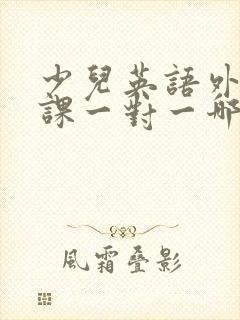 少兒英語外
課一對一哪
風霜叠影